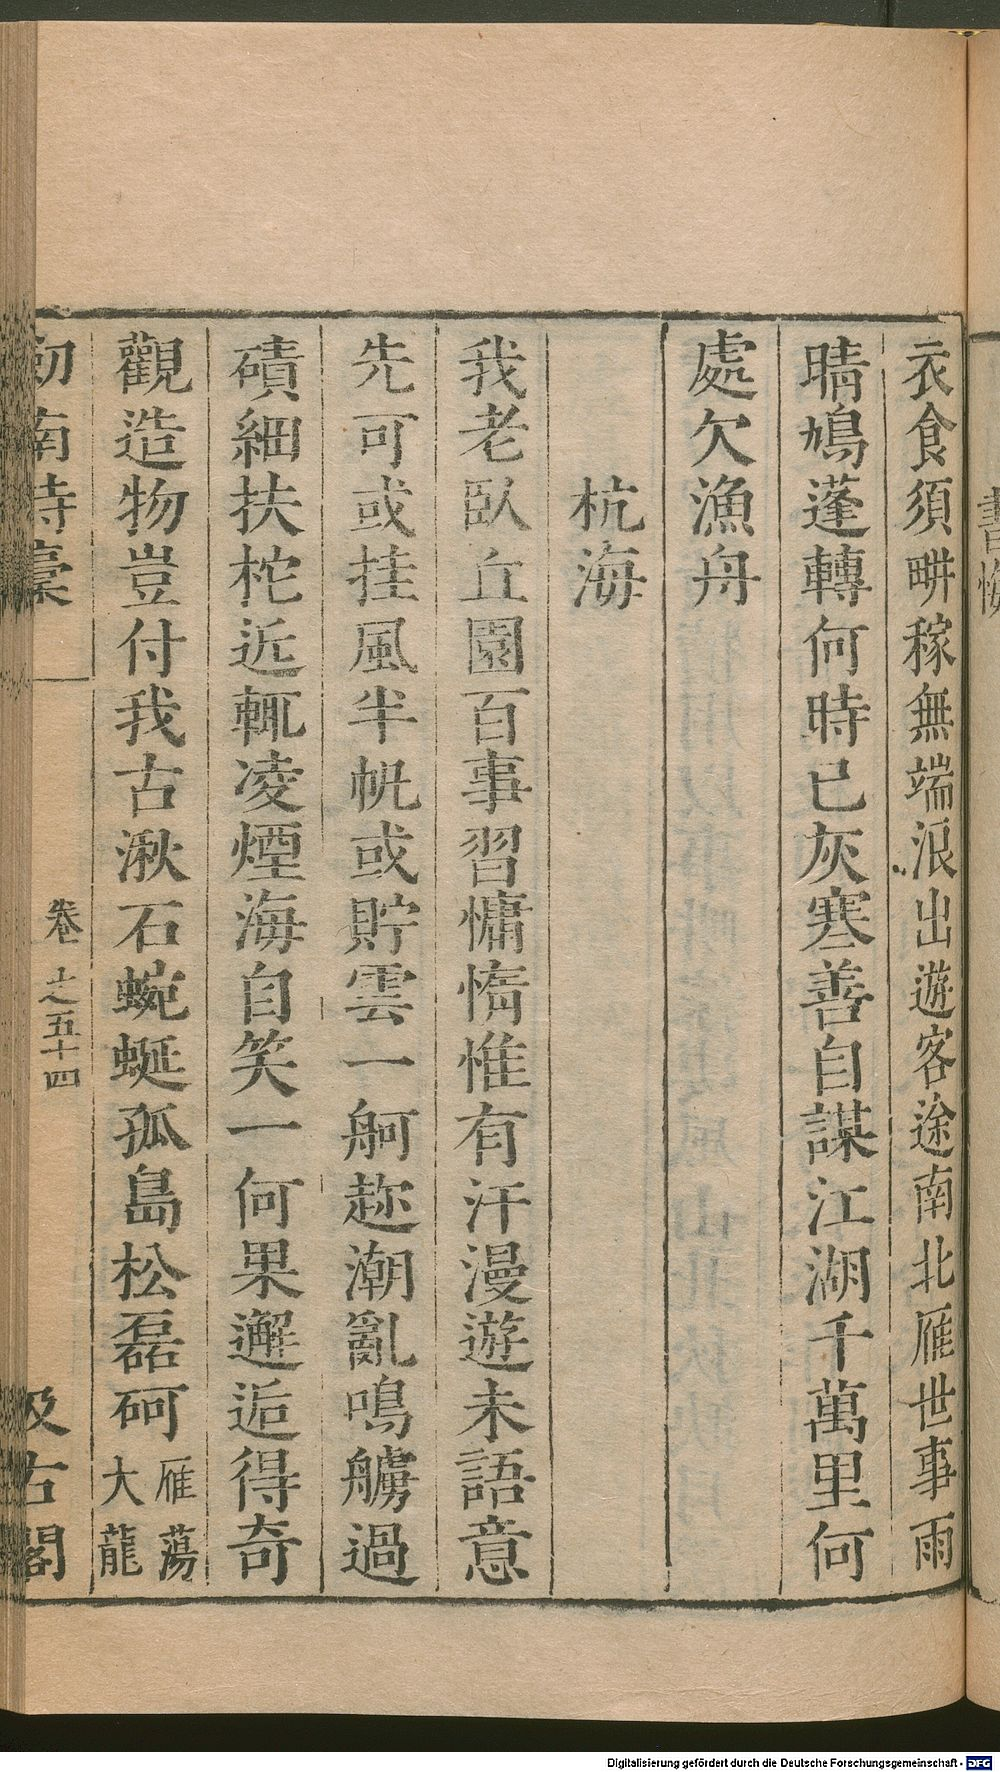 書懷
衣食須畊稼無端浪出遊客途南北雁世事雨
晴鳩蓬轉何時已灰寒善自謀江湖千萬里何
處欠漁舟
杭海
我老臥丘園百事習慵惰惟有汗漫遊未語意
先可或挂風半帆或貯雲一舸趂潮亂鳴艣過
磧細扶柁近輒凌煙海自笑一何果邂逅得奇
觀造物豈付我古湫石蜿蜒孤島松磊砢雁蕩
大龍
劒南詩稾 卷之五十四 汲古閣
Digitalisierung gefördert durch die Deutsche Forschungsgemeinschaft - DFG